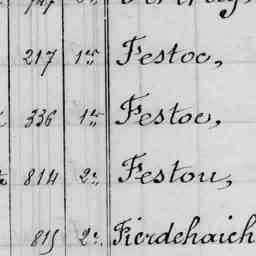 217 1er Festoc,
336 1er Festoc,
814 2e Festou,
815 2e Fierdehaich